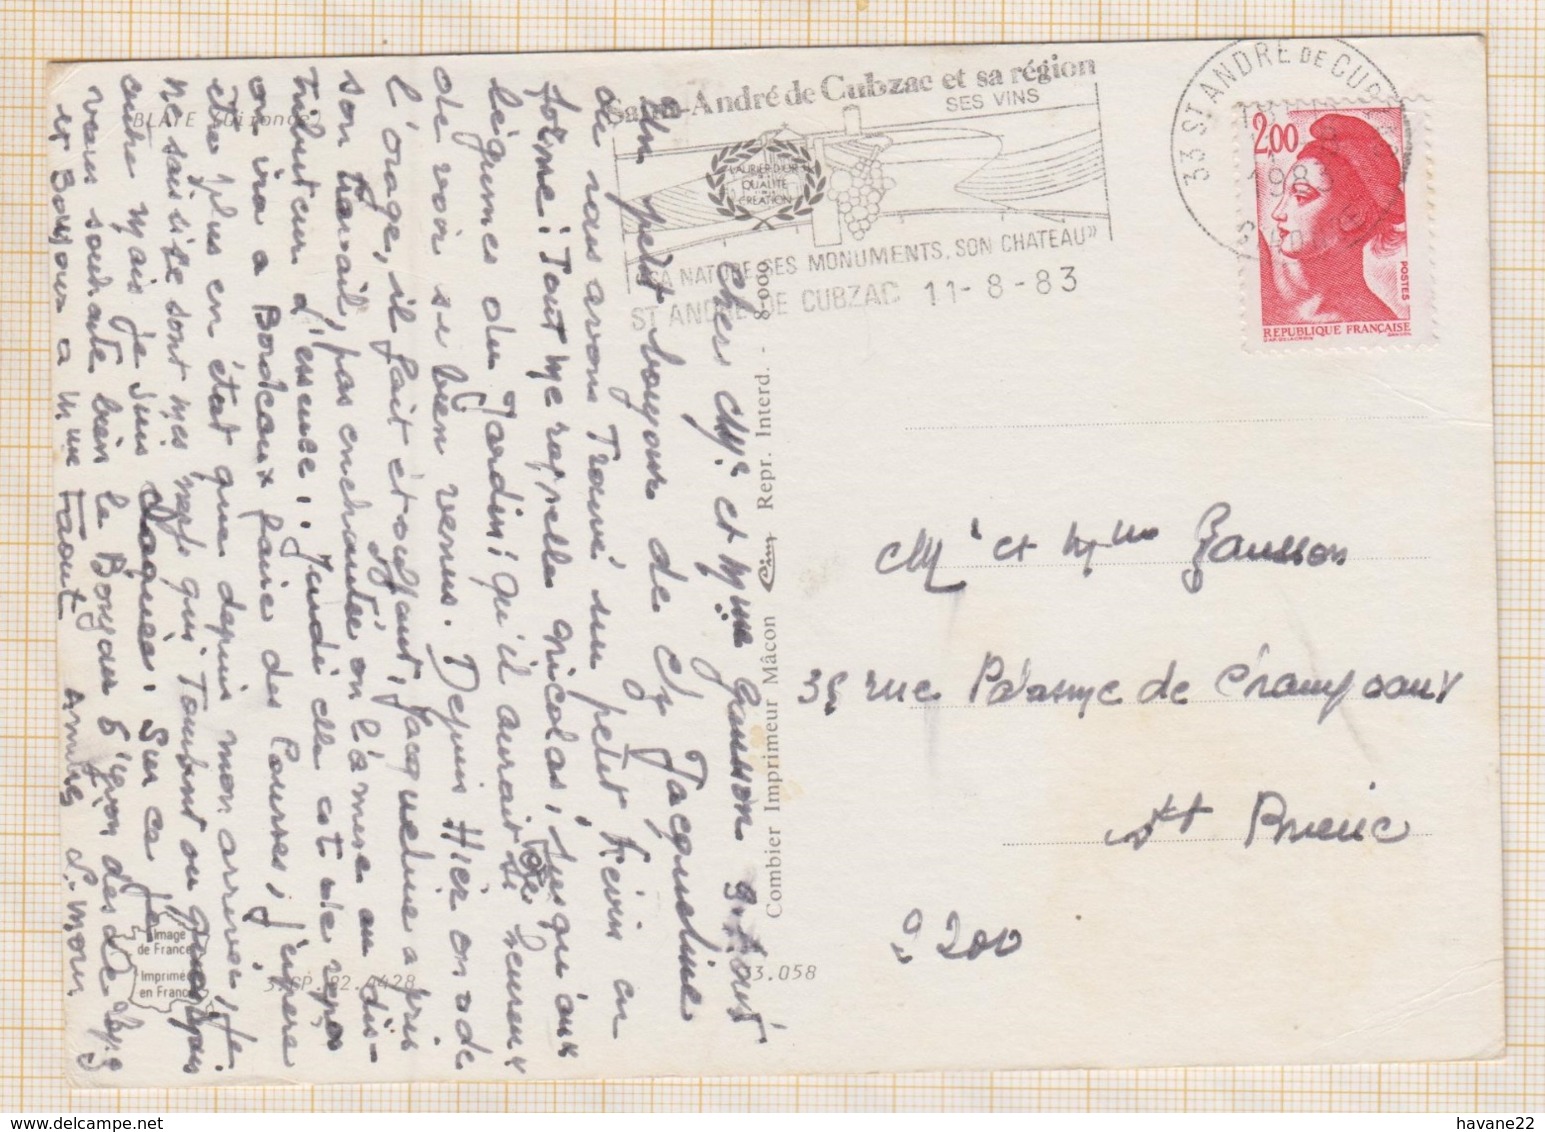 Saint-André de Cubzac et sa région
SES VINS
LAURIER D'OR
QUALITE
CREATION
«SA NATURE, SES MONUMENTS, SON CHATEAU»
ST ANDRE DE CUBZAC 11-8-83
33 ST ANDRE DE CUB
1983
2,00
POSTES
REPUBLIQUE FRANÇAISE
BLAYE (Gironde)
Chers Mr et Mme Gausson 9 Août
Un petit bonjour de chez Jacqueline
où nous avons Trouvé un petit Kévin en
forme; Tout me rappelle Nicolas, jusqu'aux
légumes du Jardin; qu'il aurait été heureux
de voir si bien venus. Depuis Hier on a de
l'orage, il fait étouffant, Jacqueline a pris
son travail, pas enchantée on l'a mise au dis-
tributeur d'essence. Jeudi elle est de repos
on ira a Bordeaux faire des Courses, j'espère
être plus en état que depuis mon arrivée, je
ne sais si ce sont mes nerfs qui Tombent ou
autre mais je suis. Sur ce je
vous souhaite bien le Bonjour
et Bonjour a Mme Faout Amitiés S. Mour
Combier Imprimeur Mâcon Cim Repr. Interd. - 8-009
Image
de France
Imprimée
en France
33.058
Mr et Mme Gausson
38 rue Palasne de Champeaux
St Brieuc
22000
havane22